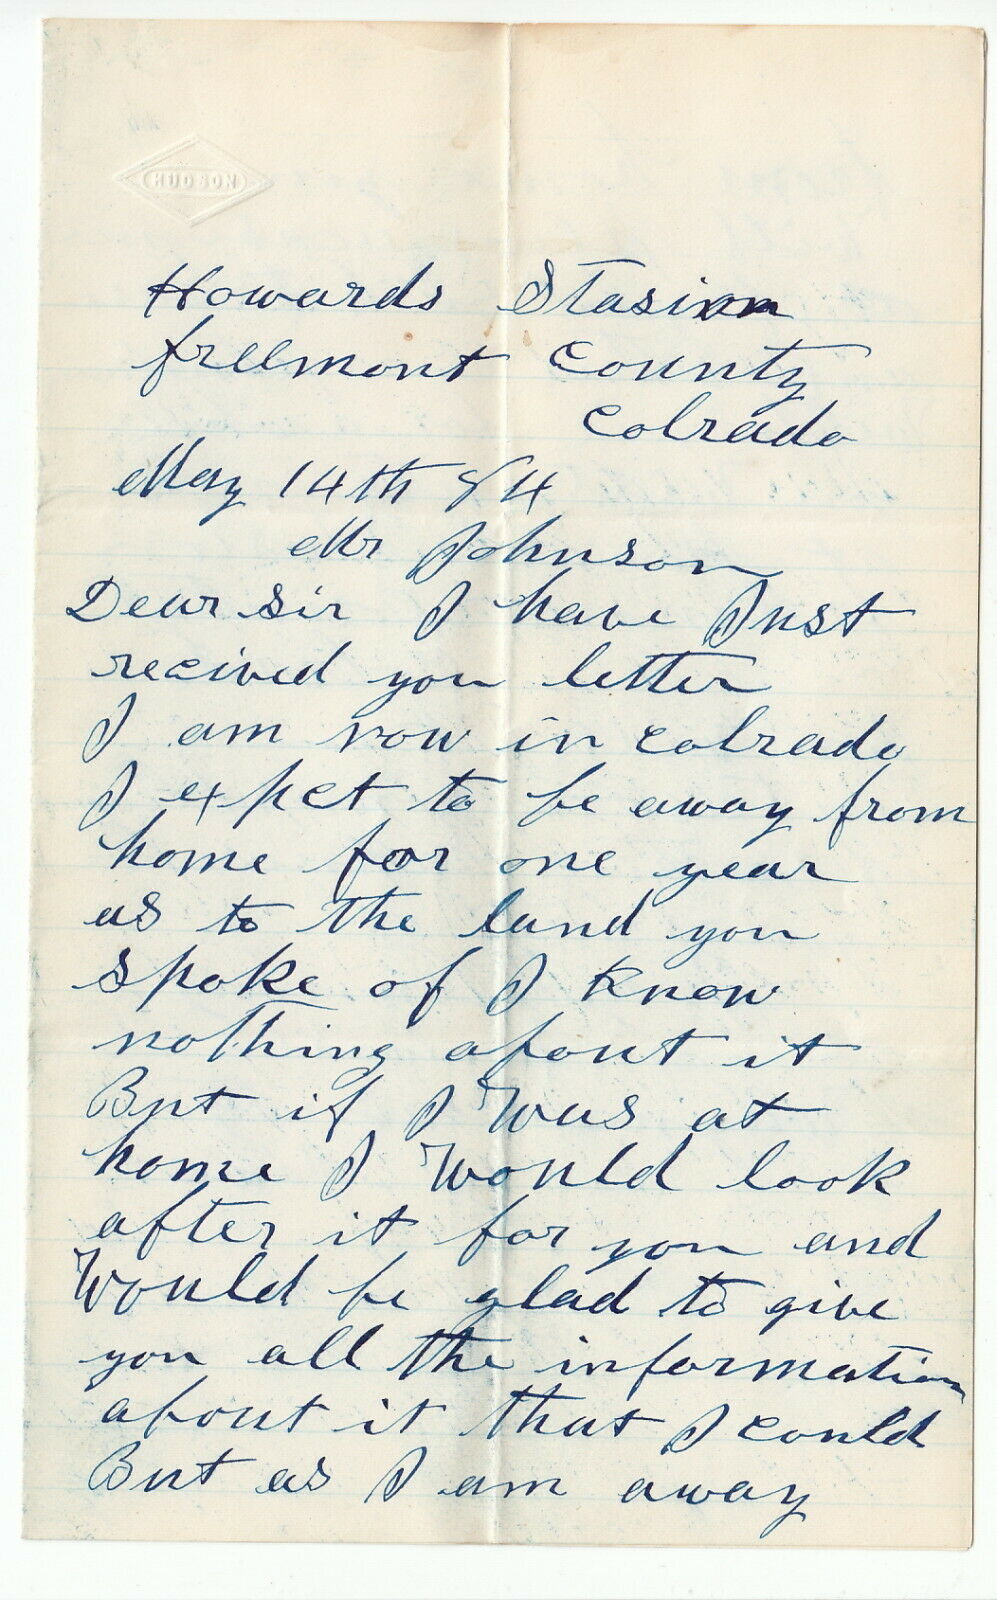 HUDSON
Howards Stasion
freemont County
Colrado
May 14th 84
Mr Johnson
Dear sir I have Just
recived you letter
I am now in Colrado
I expct to be away from
home for one year
as to the land you
spoke of I Know
nothing about it
But if I Was at
home I Would look
after it for you and
Would be glad to give
you all the information
about it that I could
But as I am away